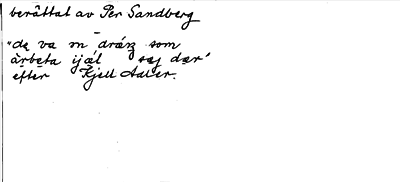 berättat av Per Sandberg
"de va en dräng som
arbeta ijäl sej där"
efter Kjell Adler.